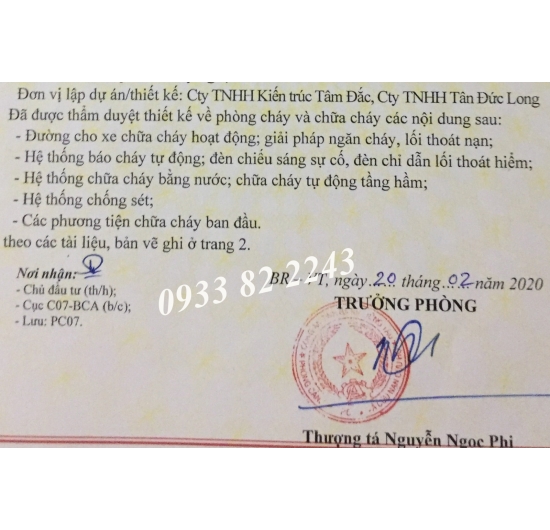 Đơn vị lập dự án/thiết kế: Cty TNHH Kiến trúc Tâm Đắc, Cty TNHH Tân Đức Long
Đã được thẩm duyệt thiết kế về phòng cháy và chữa cháy các nội dung sau:
- Đường cho xe chữa cháy hoạt động; giải pháp ngăn cháy, lối thoát nạn;
- Hệ thống báo cháy tự động; đèn chiếu sáng sự cố, đèn chỉ dẫn lối thoát hiểm;
- Hệ thống chữa cháy bằng nước; chữa cháy tự động tầng hầm;
- Hệ thống chống sét;
- Các phương tiện chữa cháy ban đầu.
theo các tài liệu, bản vẽ ghi ở trang 2.
Nơi nhận:
- Chủ đầu tư (th/h);
- Cục C07-BCA (b/c);
- Lưu: PC07.
0933 82 2243
BR - VT, ngày 20 tháng 02 năm 2020
TRƯỞNG PHÒNG
Thượng tá Nguyễn Ngọc Phi